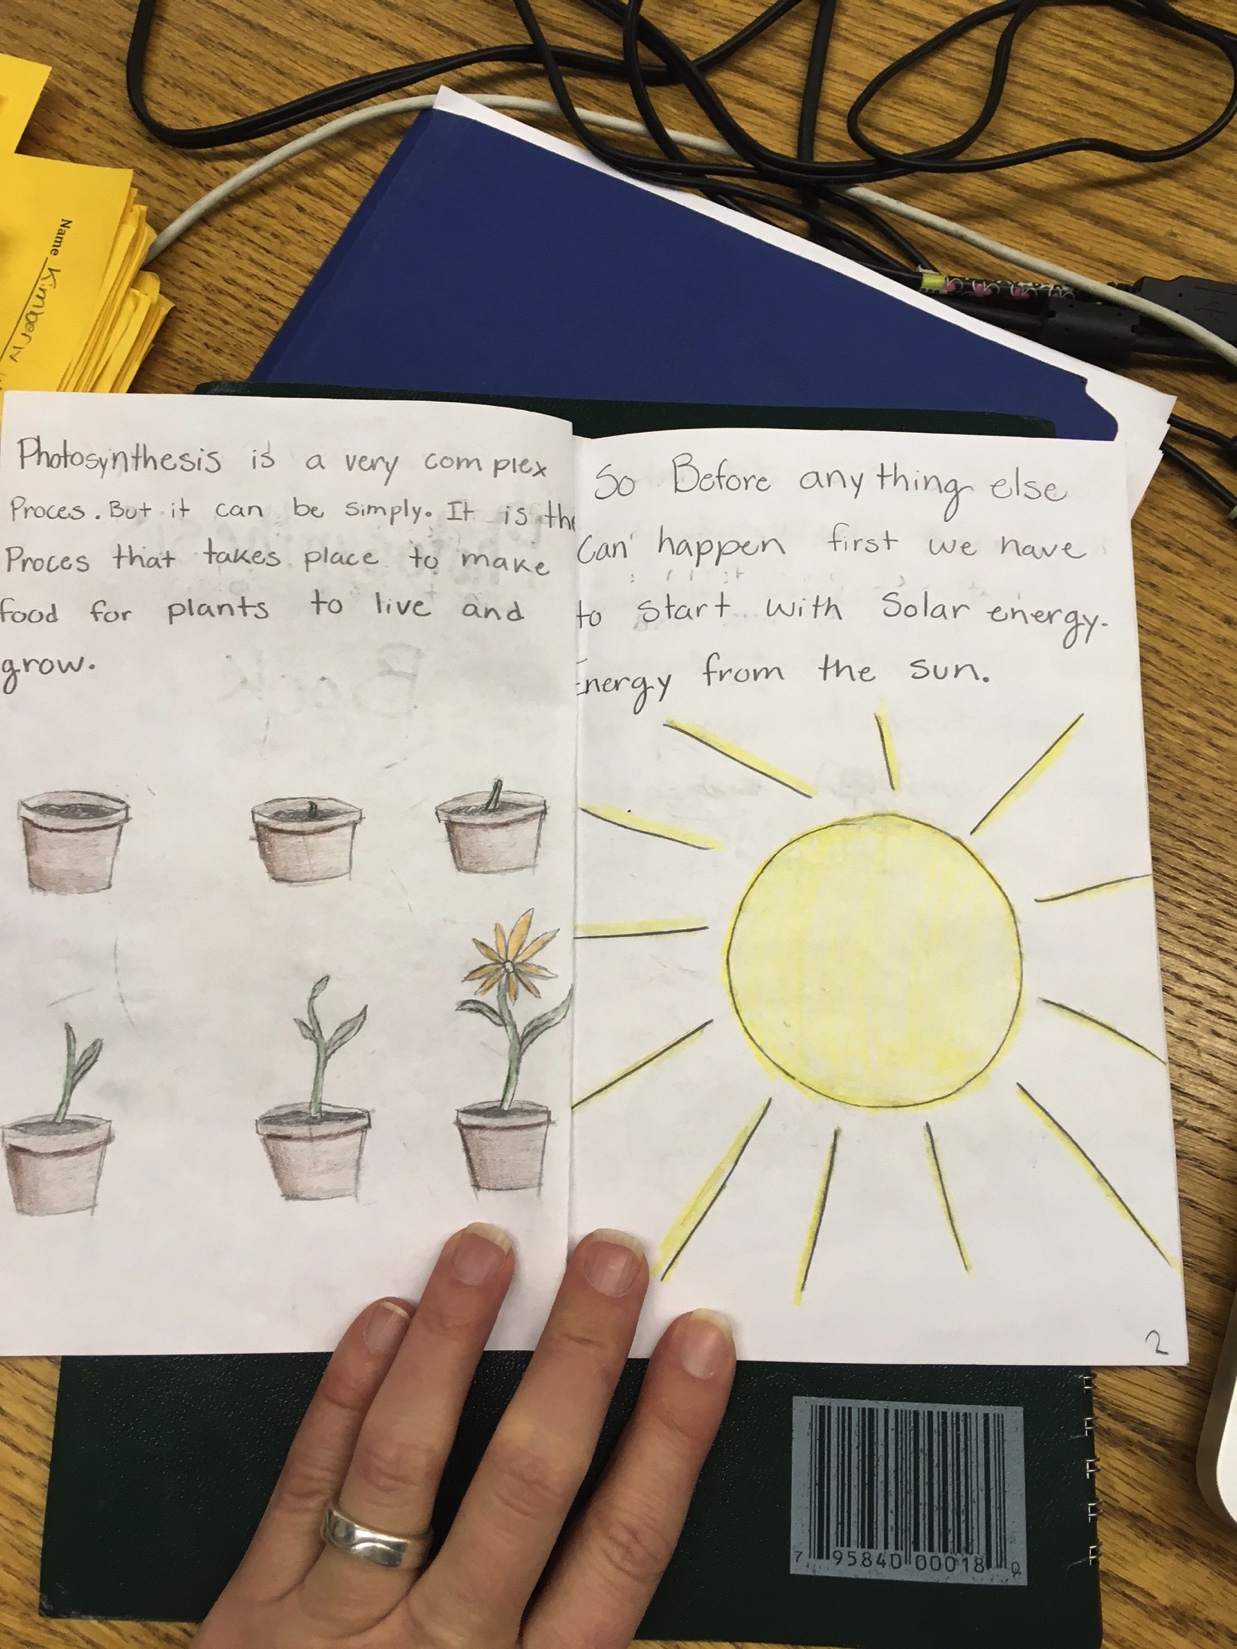 Name Kimberly
Photosynthesis is a very complex
Proces. But it can be simply. It is the
Proces that takes place to make
food for plants to live and
grow.
So Before anything else
Can happen first we have
to start with Solar energy.
Energy from the sun.
2
7 95840 00018 0